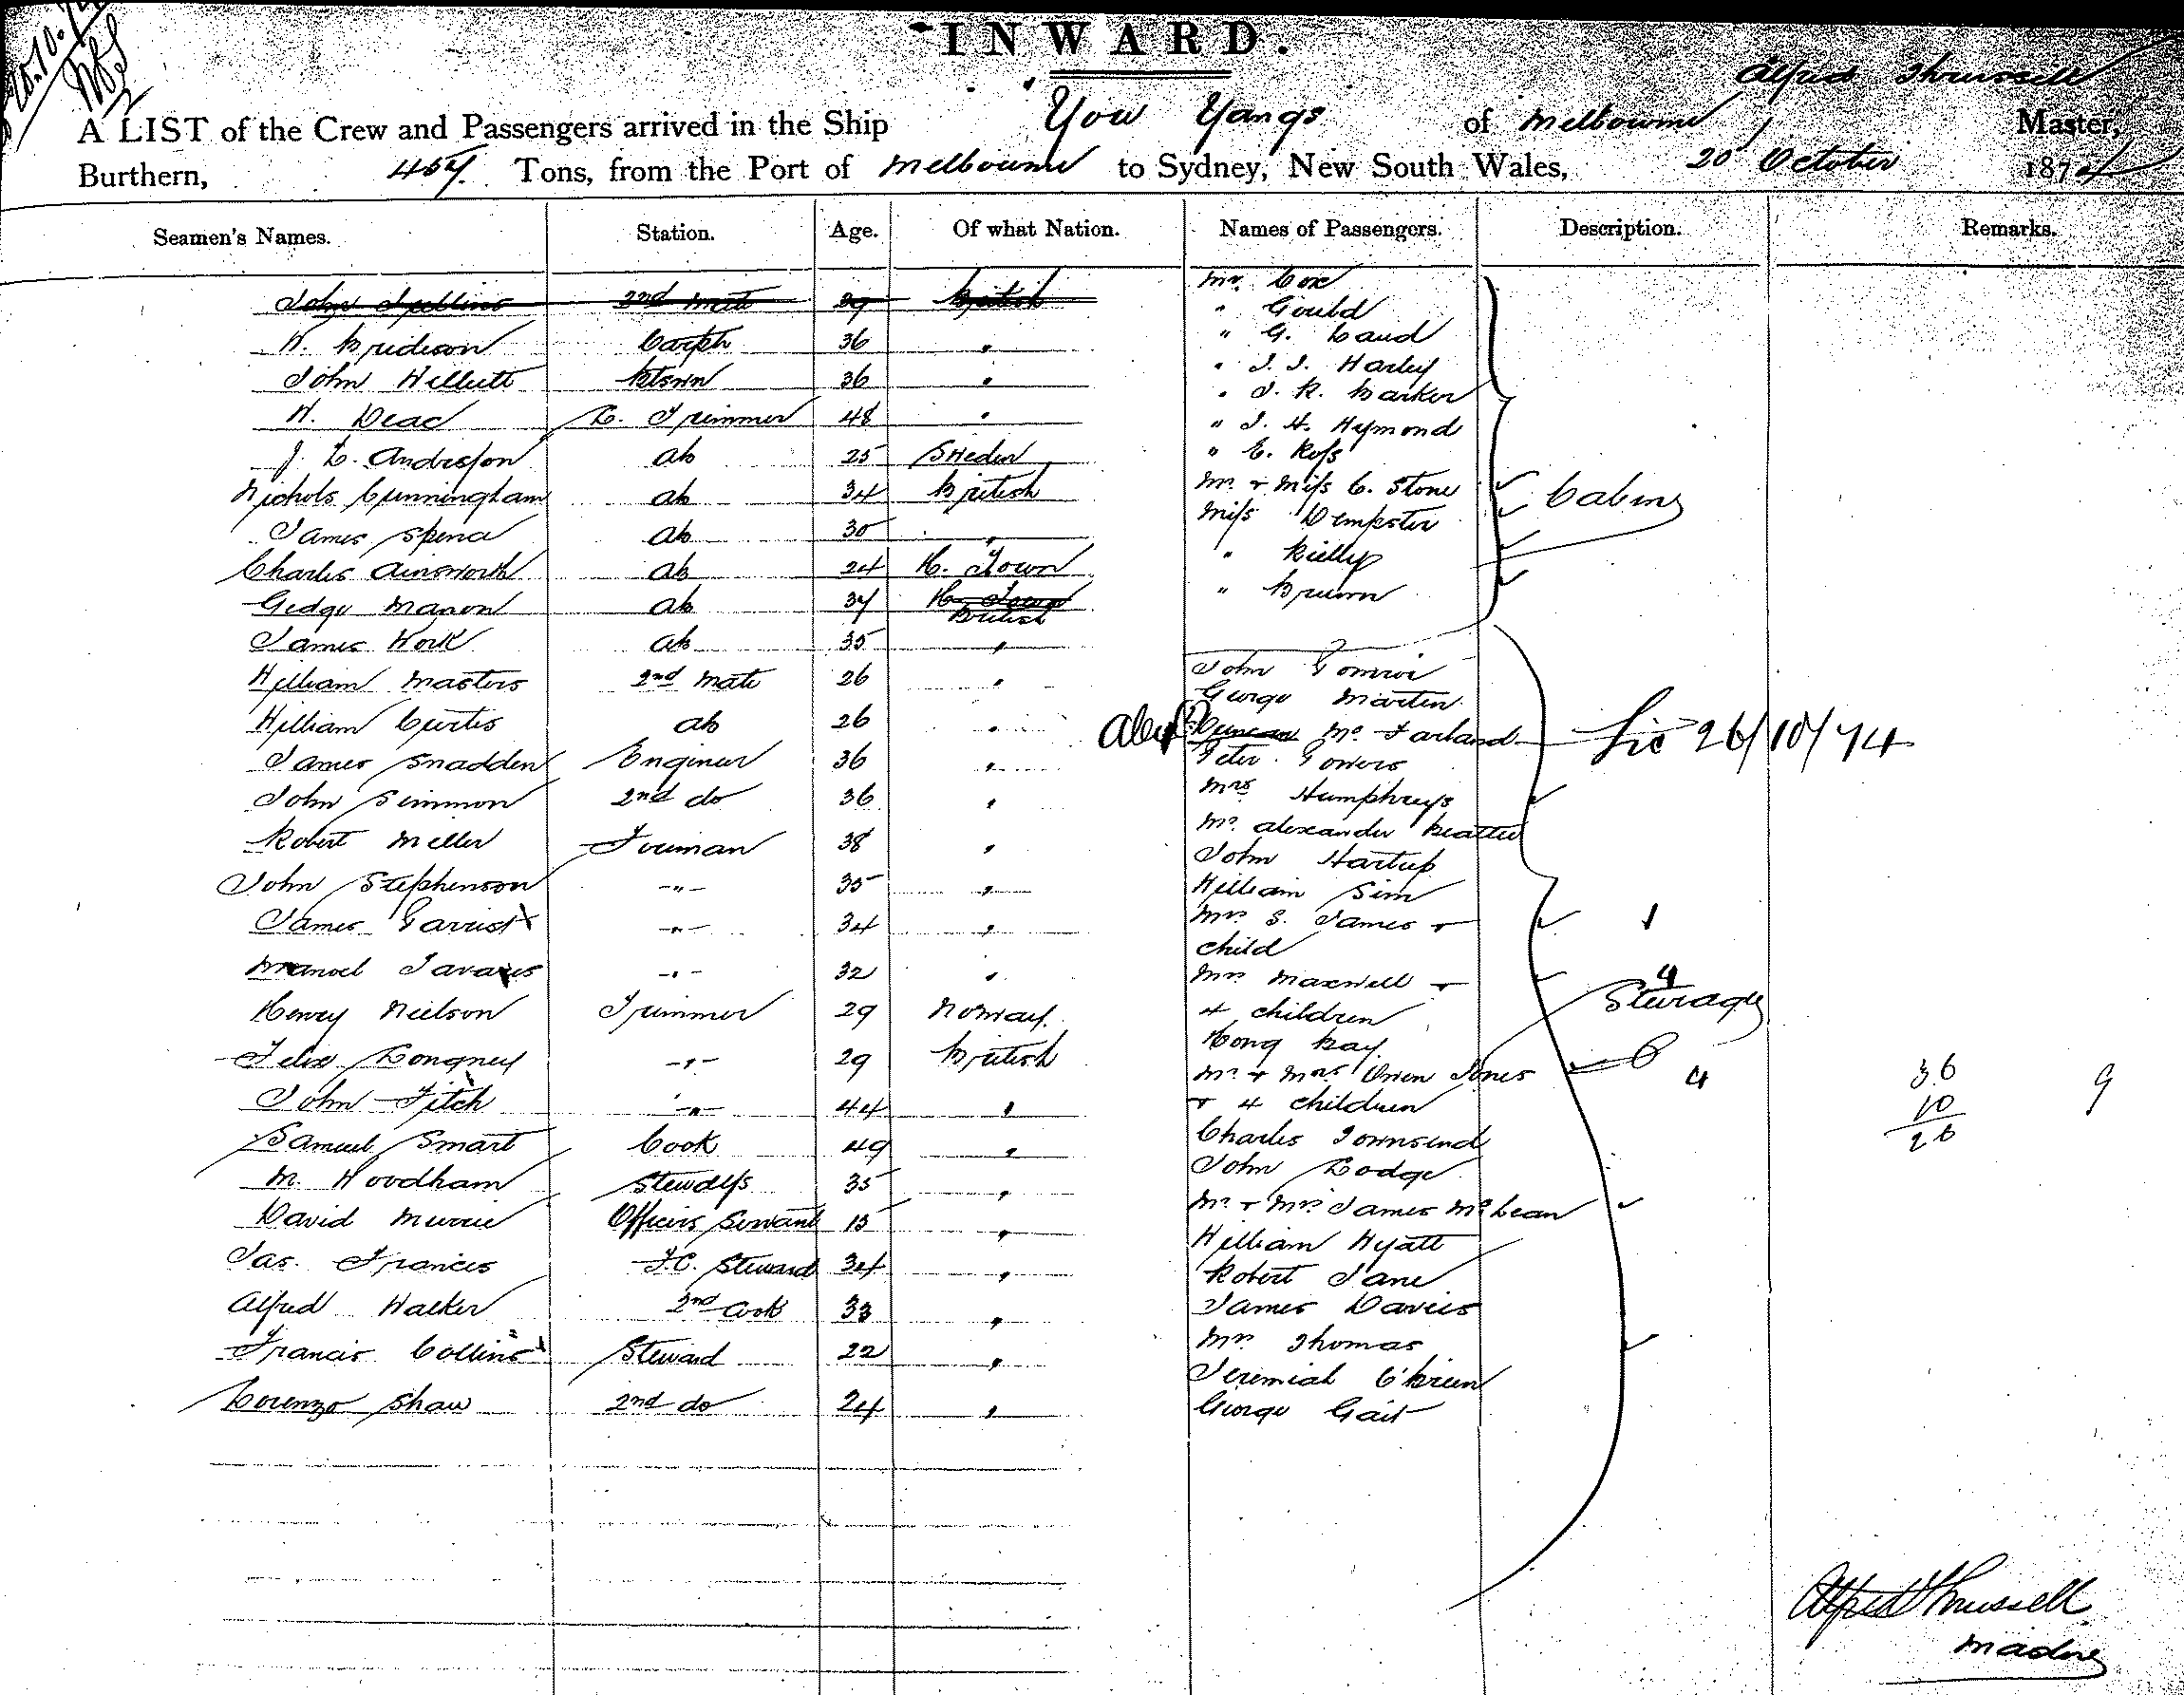 INWARD.
Alfred Thrussell
A LIST of the Crew and Passengers arrived in the Ship You Yangs of Melbourne Master,
Burthern, 457 Tons, from the Port of Melbourne to Sydney, New South Wales, 20 October 1874
Seamen's Names. Station. Age. Of what Nation. Names of Passengers. Description. Remarks.
2nd Mate 29 British Mr. Cox
36 " " Gould
" G.
John 36 " " J. J. Harley
48 " " J. R. Barker
Trimmer " J. H. Hymond
J. L. Anderson ab 25 Sweden " E. Ross
Nichols Cunningham ab 34 British Mr. & Miss C. Stone Cabin
James Spence ab 30 " Miss Dempster
Charles Ainsworth ab 24 H. Town " Rielly
ab 37 H. Town British "
James Work ab 35 "
William Masters 2nd Mate 26 " John
George Martin
William Curtis ab 26 " Alex Duncan Mc Farland Lic 26/10/74
James Snadden Engineer 36 " Peter Powers
John Simmon 2nd do 36 " Mrs Humphreys
Robert Miller Fireman 38 " Mr. Alexander Beattie
John Hartup
John Stephenson -"- 35 " William Sim
James -"- 34 " Mrs. S. James & 1
child
Manoel Tavares -"- 32 " Mrs Maxwell & 4
Henry Nielson Trimmer 29 Norway 4 children Steerage
Felix Longney -"- 29 British Hong Kay
Mr. & Mrs. Owen Jones 4 36 9
John Fitch -"- 44 " & 4 children 10
Samuel Smart Cook 49 " Charles Townsend 26
M. Woodham Stewdess 35 " John Lodge
David Murrie Officers Servant 15 " Mr. & Mrs. James McLean
William Hyatt
Jas. Francis F.C. Steward 34 " Robert Jane
Alfred Walker 2nd Cook 33 " James Davies
Francis Collins Steward 22 " Mrs. Thomas
Jeremiah O'Brien
Lorenzo Shaw 2nd do 24 " George Gait
Alfred Thrussell
Master